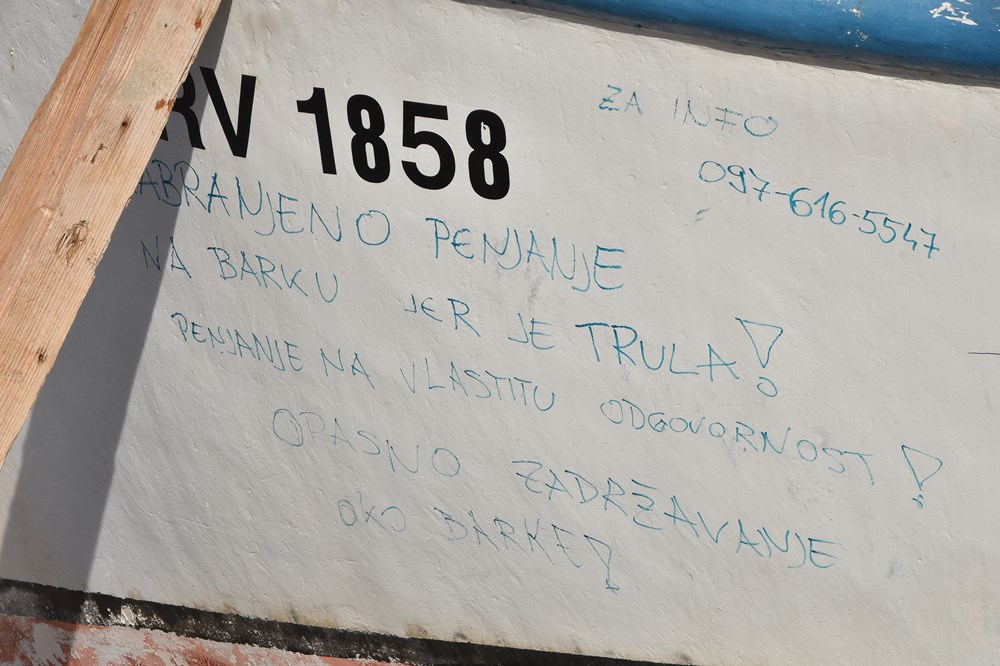 RV 1858
ZA INFO
097-616-5547
ABRANJENO PENJANJE
NA BARKU JER JE TRULA!
PENJANJE NA VLASTITU ODGOVORNOST!
OPASNO ZADRŽAVANJE
OKO BARKE!